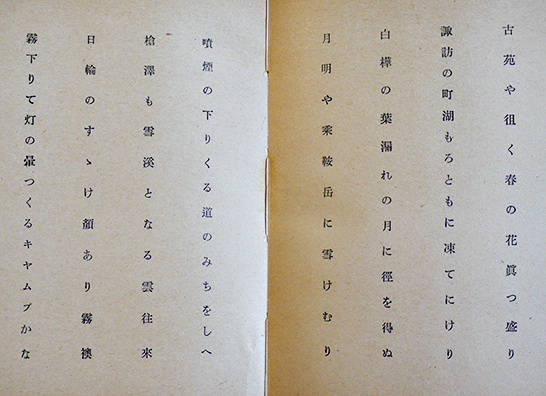 古苑や徂く春の花眞つ盛り
諏訪の町湖もろともに凍てにけり
白樺の葉漏れの月に徑を得ぬ
月明や乘鞍岳に雪けむり
噴煙の下りくる道のみちをしへ
槍澤も雪溪となる雲往來
日輪のすゝけ顏あり霧襖
霧下りて灯の暈つくるキヤムプかな